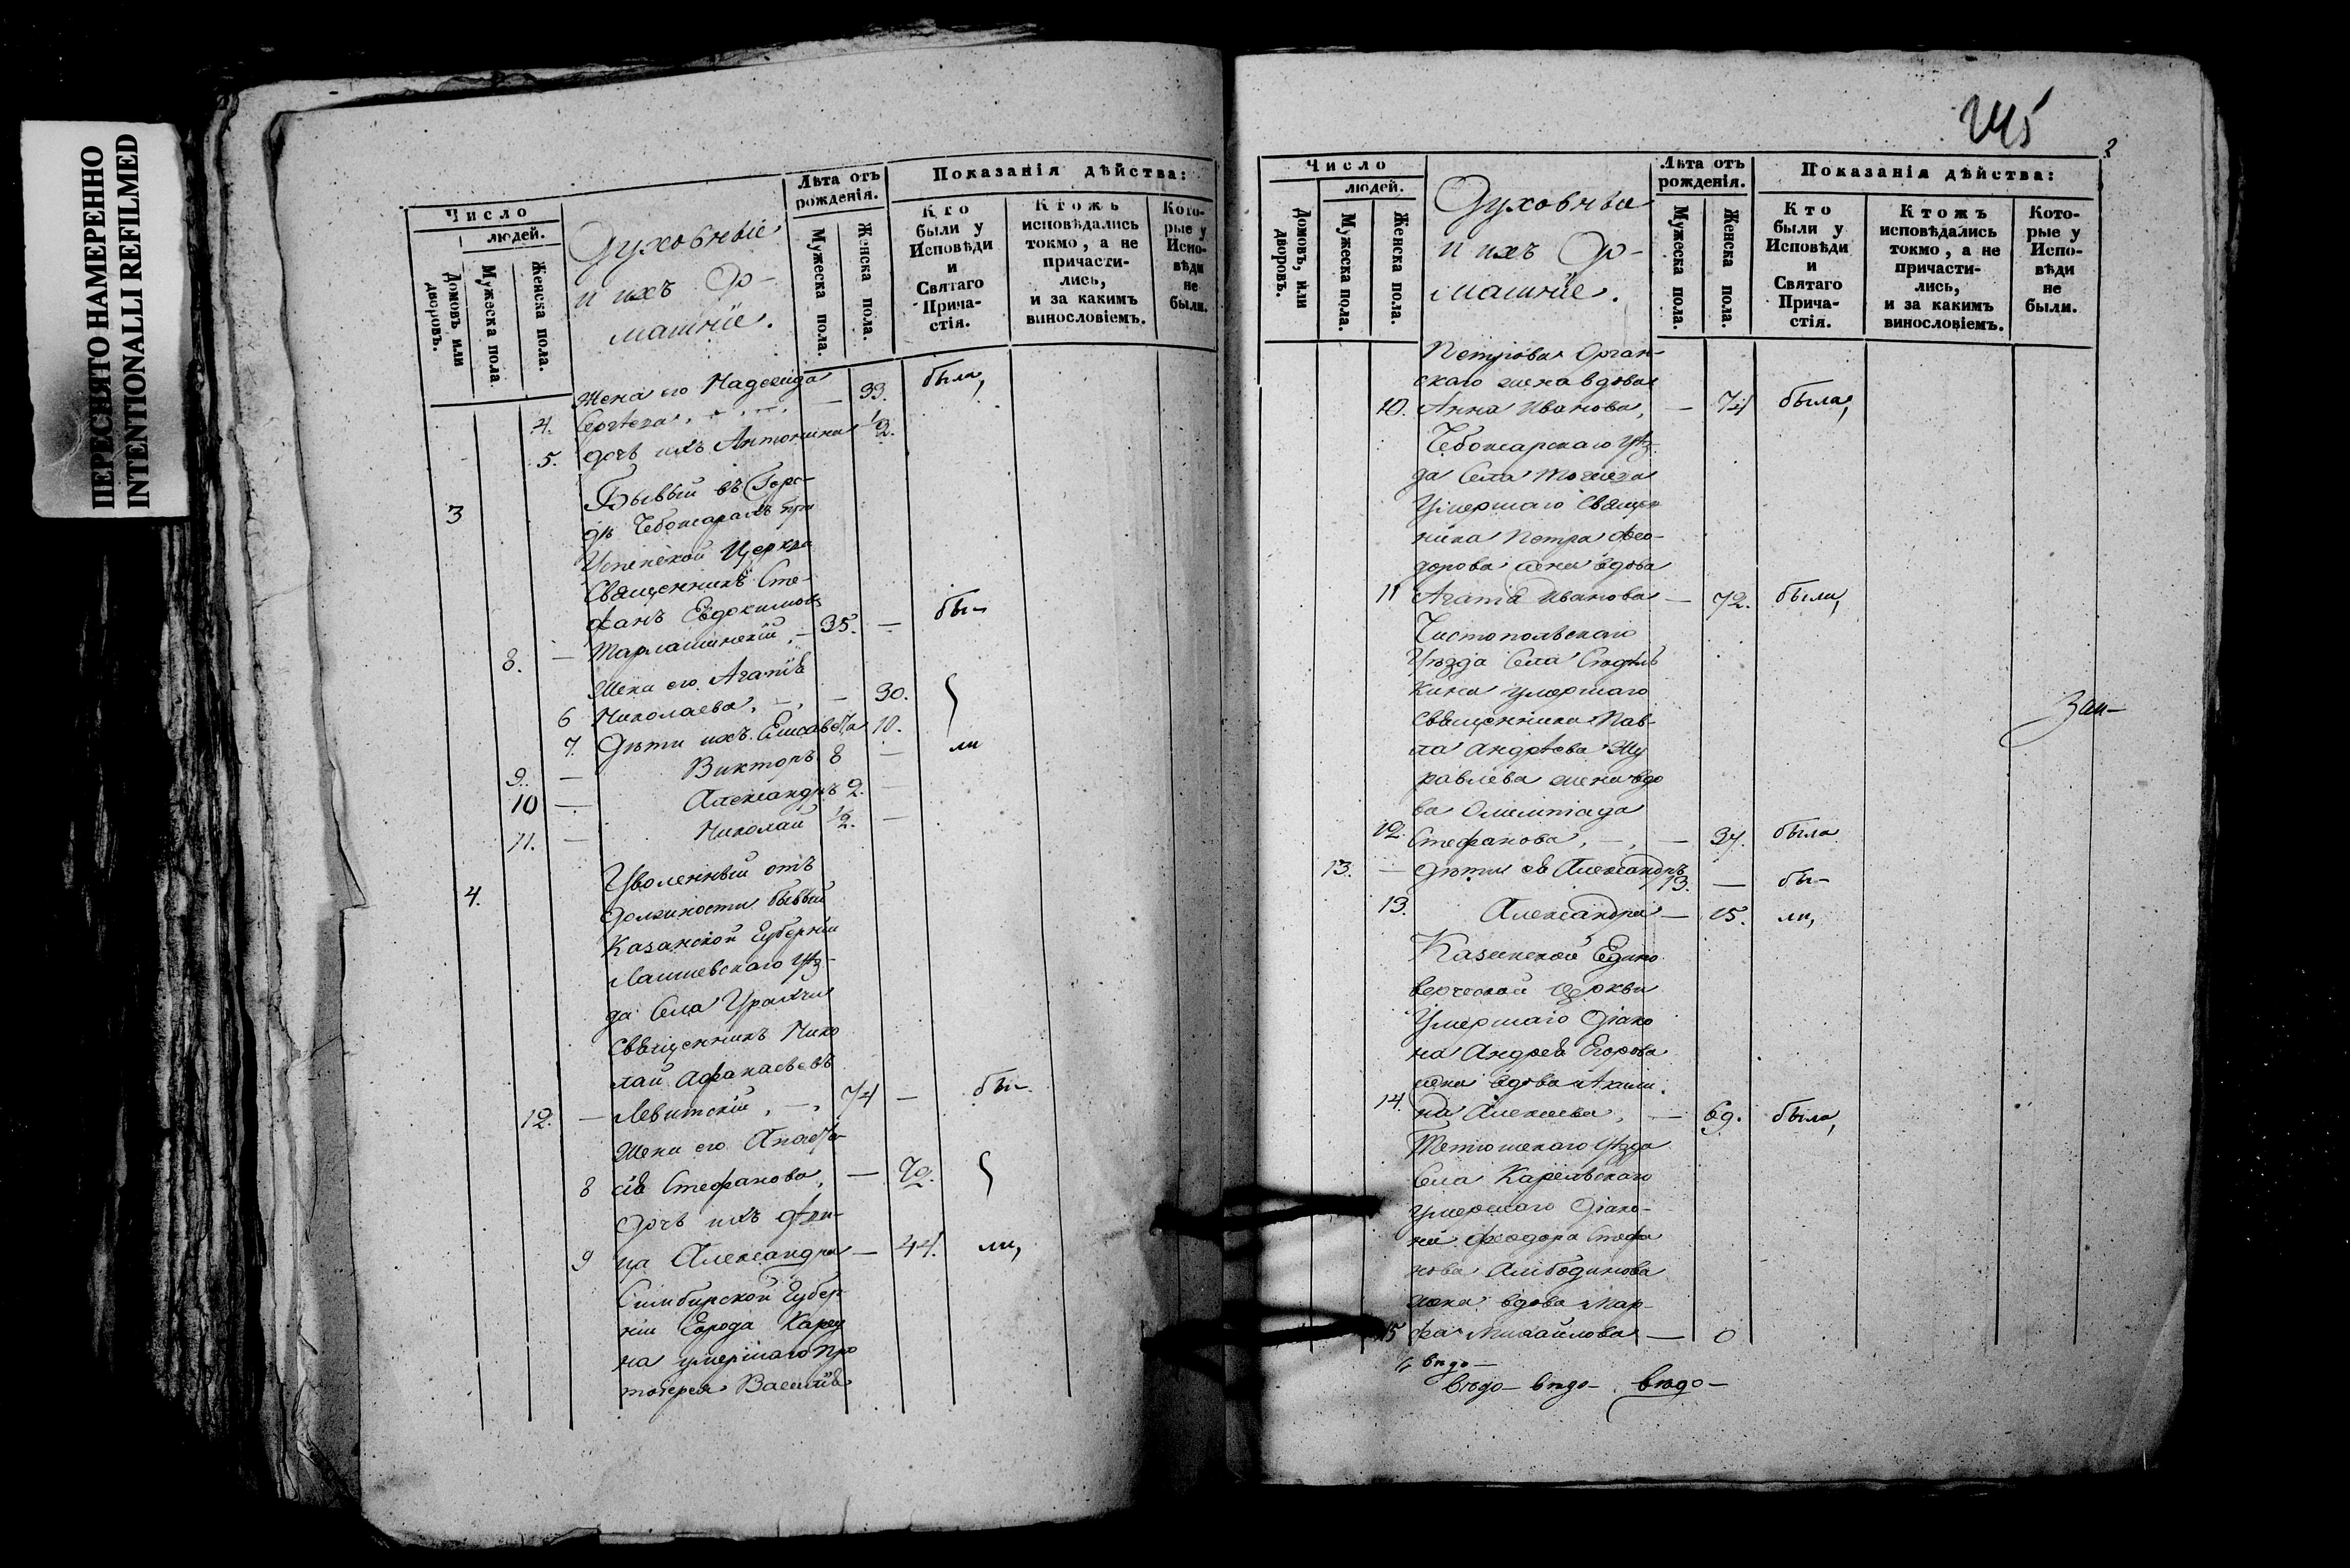 ПЕРЕСНЯТО НАМЕРЕННО
INTENTIONALLI REFILMED
Число
людей.
Домовъ или дворовъ.
Мужеска пола
Женска пола.
Духовные
и ихъ До-
машніе.
Лѣта отъ рожденія.
Мужеска пола.
Женска пола.
Показанія дѣйства:
Кто были у Исповѣди и Святаго Прича- стія.
Ктожъ исповѣдались токмо, а не причасти- лись, и за какимъ винословіемъ.
Кото- рые у Испо- вѣди не были.
Жена его Надежда
4. Сергѣева, — 33. была,
5. Дочь ихъ Антонина 1/2.
3 Бывый въ Горо-
дѣ Чебоксарахъ при
Успенской Церкви
Священникъ Сте-
фанъ Евдокимовъ
8. — 35. — бы-
Жена его Агапія
6 Николаева, — 30.
7. Дѣти ихъ Елисавета 10.
9. — Викторъ 8 — ли
10 — Александръ 2. —
11. — Николай 1/2. —
4. Уволенный отъ
должности бывый
Казанской Губерніи
Лаишевскаго Уѣз-
да Села
Священникъ Нико
лай Афанасьевъ
12. — Левитскій, — 74 — бы-
Жена его Анаста-
8 сія Стефанова, — 72.
Дочь ихъ дѣви-
9 ца Александра — 44. ли,
Симбирской Губер
ніи Города Карсу
на умершаго Про
тоіерея Василія
245
2
Число
людей.
Домовъ, или дворовъ.
Мужеска пола.
Женска пола.
Духовные
и ихъ До-
машніе.
Лѣта отъ рожденія.
Мужеска пола.
Женска пола.
Показанія дѣйства:
Кто были у Исповѣди и Святаго Прича- стія.
Ктожъ исповѣдались токмо, а не причасти- лись, и за какимъ винословіемъ.
Кото- рые у Испо- вѣди не были.
Петрова
скаго жена вдова
10. Анна Иванова, — 74 была,
Чебоксарскаго Уѣз-
да Села
Умершаго Священ
ника Петра Фео-
дорова жена вдова
11 Агапія Иванова — 72. была,
Чистопольскаго
Уѣзда Села
кина умершаго
Священника Пав-
ла Андреева Жу
равлева жена вдо
ва Олимпіада
12. Стефанова, — 34. была
13. — Дѣти ея Александръ 13. — бы-
13. Александра — 15. ли,
Казанской Едино
верческой Церкви
Умершаго Діако
на Андрея Егорова
жена вдова Акили
14. на Алексеева, — 69. была,
Тетюшскаго Уѣзда
Села
умершаго Діако-
на Феодора Стефа
нова
жена вдова Мар-
15 фа Михайлова — 0
вѣдо-
вѣдо- вѣдо- вѣдо-